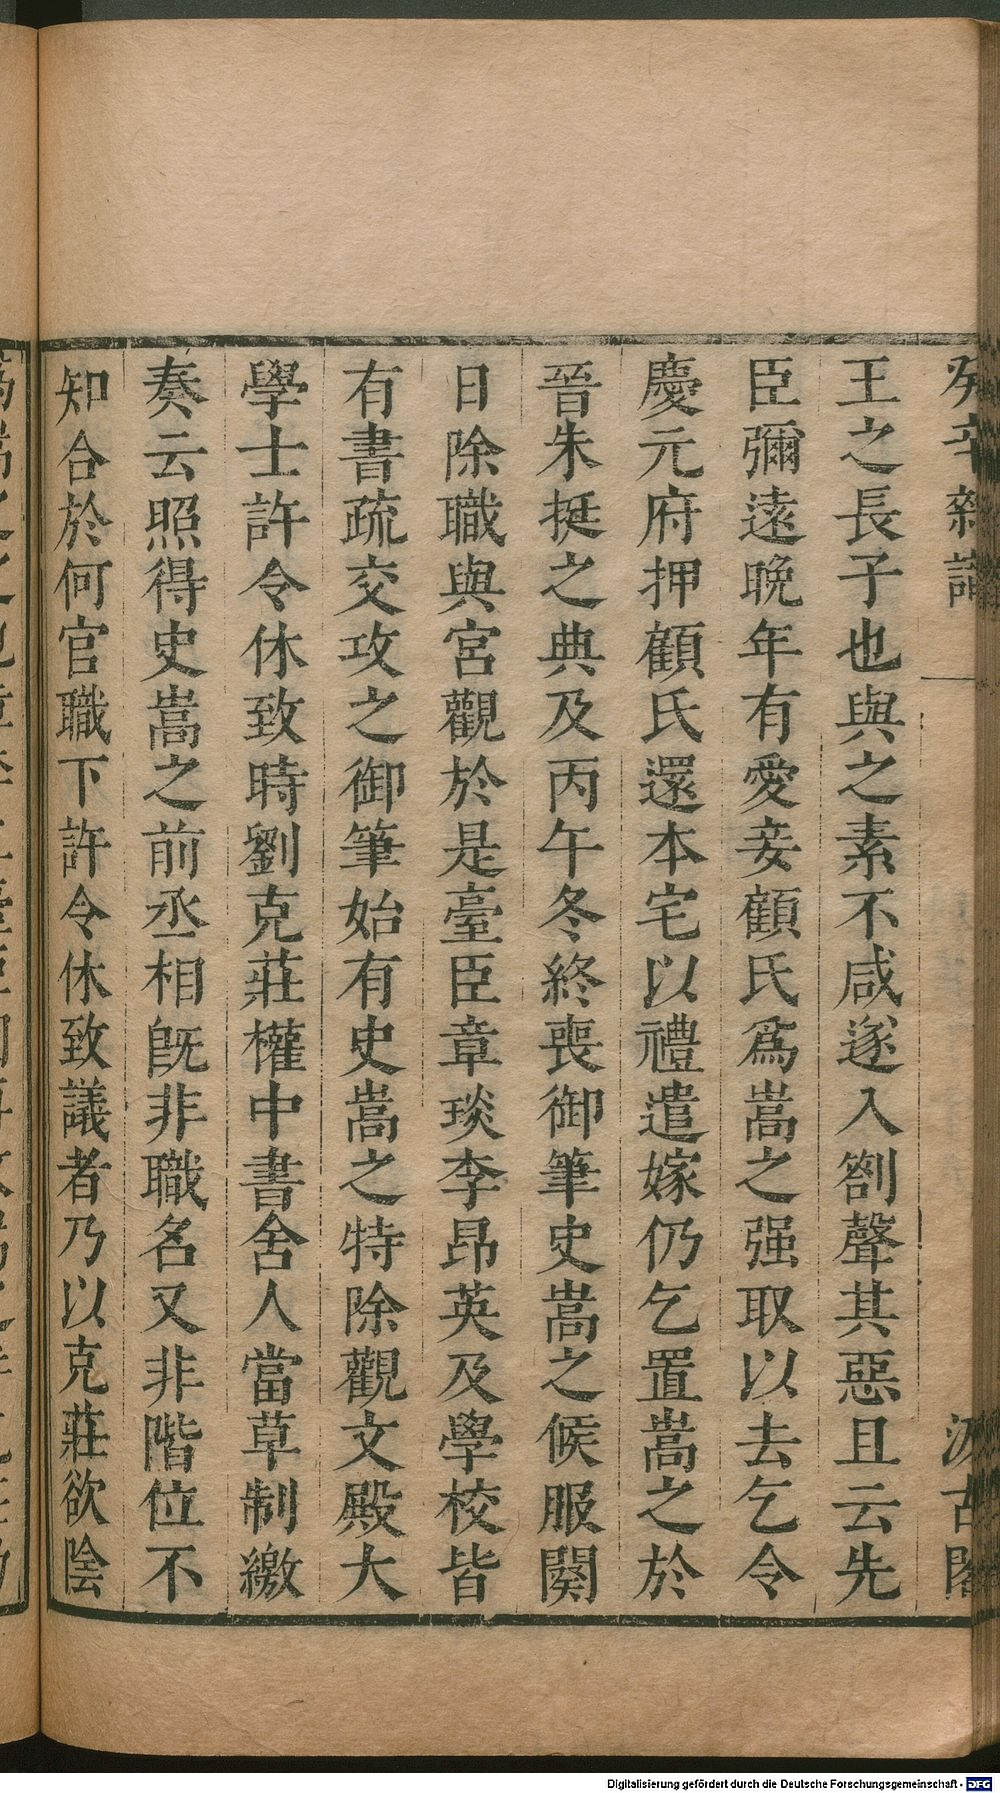 癸辛雜識 汲古閣
王之長子也與之素不咸遂入劄聲其惡且云先
臣彌遠晚年有愛妾顧氏爲嵩之强取以去乞令
慶元府押顧氏還本宅以禮遣嫁仍乞置嵩之於
晉朱挺之典及丙午冬終喪御筆史嵩之候服闋
日除職與宮觀於是臺臣章琰李昂英及學校皆
有書疏交攻之御筆始有史嵩之特除觀文殿大
學士許令休致時劉克莊權中書舍人當草制繳
奏云照得史嵩之前丞相旣非職名又非階位不
知合於何官職下許令休致議者乃以克莊欲陰
Digitalisierung gefördert durch die Deutsche Forschungsgemeinschaft - DFG